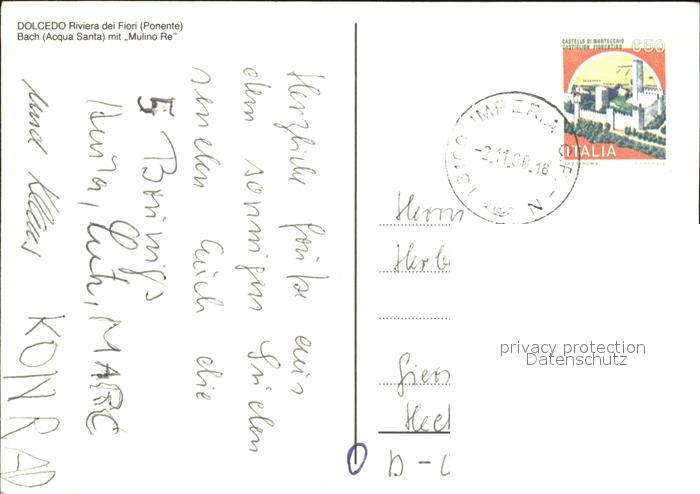 DOLCEDO Riviera dei Fiori (Ponente)
Bach (Acqua Santa) mit „Mulino Re"
Herzliche Grüße aus
dem sonnigen Süden
senden Euch die
5
Herta, Lutz, MARC
und Klaus KONRAD
CASTELLO DI MONTECCHIO
CASTIGLION FIORENTINO
650
ITALIA
18100 IMPERIA
-2.11.90.18
Herrn
Herb
Gier
Hec
D-
privacy protection
Datenschutz